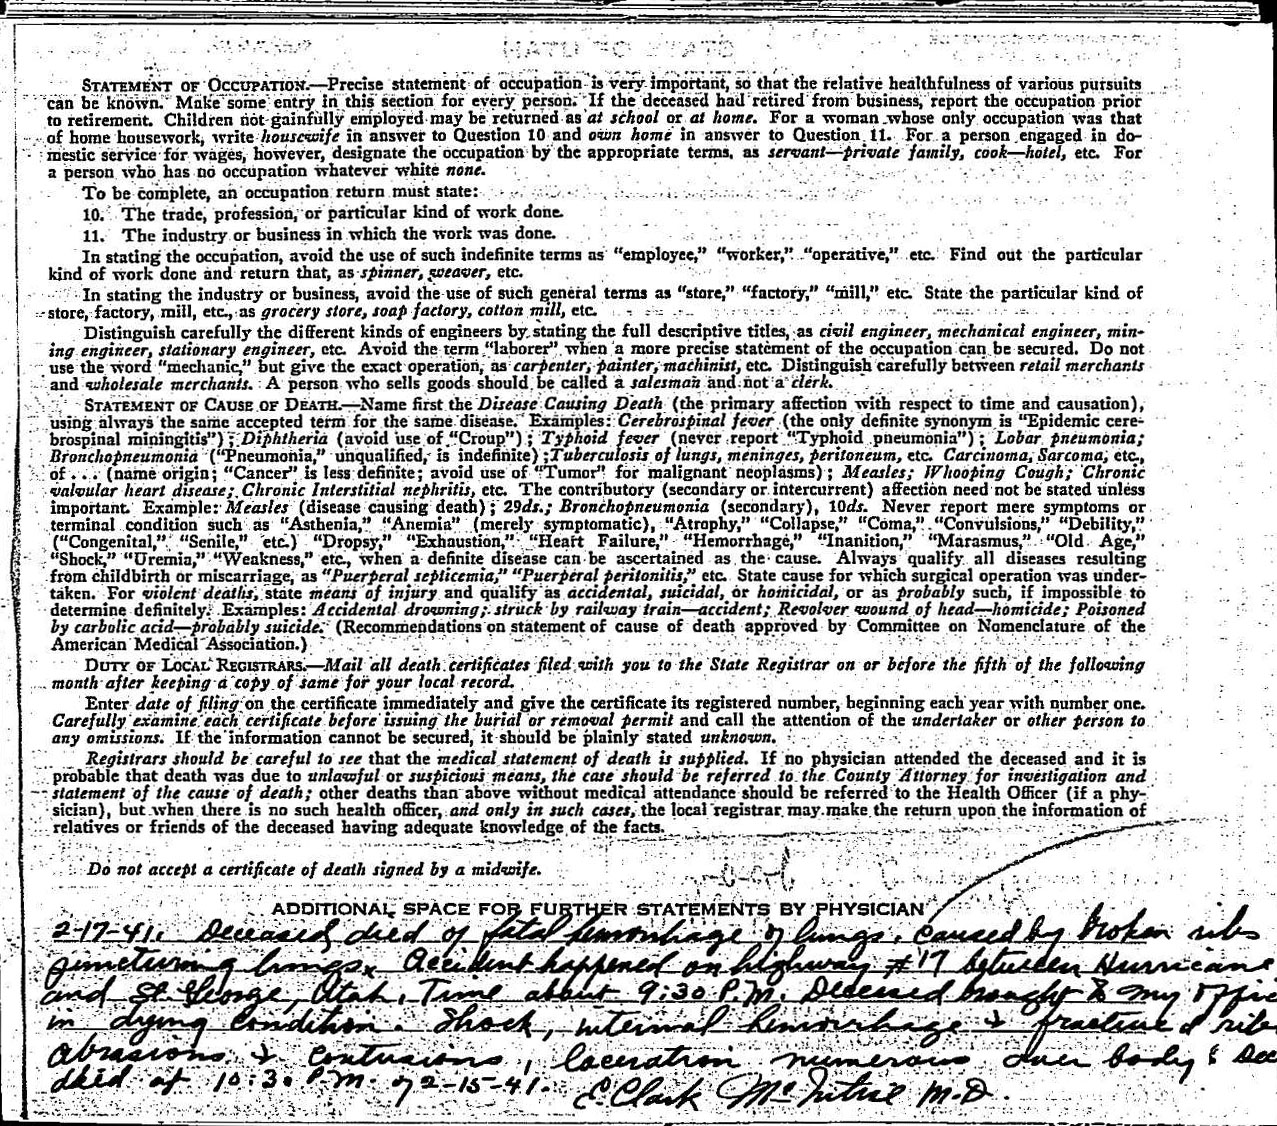 STATEMENT OF OCCUPATION.—Precise statement of occupation is very important, so that the relative healthfulness of various pursuits
can be known. Make some entry in this section for every person. If the deceased had retired from business, report the occupation prior
to retirement. Children not gainfully employed may be returned as at school or at home. For a woman whose only occupation was that
of home housework, write housewife in answer to Question 10 and own home in answer to Question 11. For a person engaged in do-
mestic service for wages, however, designate the occupation by the appropriate terms, as servant—private family, cook—hotel, etc. For
a person who has no occupation whatever white none.
To be complete, an occupation return must state:
10. The trade, profession, or particular kind of work done.
11. The industry or business in which the work was done.
In stating the occupation, avoid the use of such indefinite terms as "employee," "worker," "operative," etc. Find out the particular
kind of work done and return that, as spinner, weaver, etc.
In stating the industry or business, avoid the use of such general terms as "store," "factory," "mill," etc. State the particular kind of
store, factory, mill, etc., as grocery store, soap factory, cotton mill, etc.
Distinguish carefully the different kinds of engineers by stating the full descriptive titles, as civil engineer, mechanical engineer, min-
ing engineer, stationary engineer, etc. Avoid the term "laborer" when a more precise statement of the occupation can be secured. Do not
use the word "mechanic," but give the exact operation, as carpenter, painter, machinist, etc. Distinguish carefully between retail merchants
and wholesale merchants. A person who sells goods should be called a salesman and not a clerk.
STATEMENT OF CAUSE OF DEATH.—Name first the Disease Causing Death (the primary affection with respect to time and causation),
using always the same accepted term for the same disease. Examples: Cerebrospinal fever (the only definite synonym is "Epidemic cere-
brospinal miningitis"); Diphtheria (avoid use of "Croup"); Typhoid fever (never report "Typhoid pneumonia"); Lobar pneumonia;
Bronchopneumonia ("Pneumonia," unqualified, is indefinite); Tuberculosis of lungs, meninges, peritoneum, etc. Carcinoma, Sarcoma, etc.,
of . . . (name origin; "Cancer" is less definite; avoid use of "Tumor" for malignant neoplasms); Measles; Whooping Cough; Chronic
valvular heart disease; Chronic Interstitial nephritis, etc. The contributory (secondary or intercurrent) affection need not be stated unless
important. Example: Measles (disease causing death); 29ds.; Bronchopneumonia (secondary), 10ds. Never report mere symptoms or
terminal condition such as "Asthenia," "Anemia" (merely symptomatic), "Atrophy," "Collapse," "Coma," "Convulsions," "Debility,"
("Congenital," "Senile," etc.) "Dropsy," "Exhaustion," "Heart Failure," "Hemorrhage," "Inanition," "Marasmus," "Old Age,"
"Shock," "Uremia," "Weakness," etc., when a definite disease can be ascertained as the cause. Always qualify all diseases resulting
from childbirth or miscarriage, as "Puerperal septicemia," "Puerperal peritonitis," etc. State cause for which surgical operation was under-
taken. For violent deaths, state means of injury and qualify as accidental, suicidal, or homicidal, or as probably such, if impossible to
determine definitely. Examples: Accidental drowning; struck by railway train—accident; Revolver wound of head—homicide; Poisoned
by carbolic acid—probably suicide. (Recommendations on statement of cause of death approved by Committee on Nomenclature of the
American Medical Association.)
DUTY OF LOCAL REGISTRARS.—Mail all death certificates filed with you to the State Registrar on or before the fifth of the following
month after keeping a copy of same for your local record.
Enter date of filing on the certificate immediately and give the certificate its registered number, beginning each year with number one.
Carefully examine each certificate before issuing the burial or removal permit and call the attention of the undertaker or other person to
any omissions. If the information cannot be secured, it should be plainly stated unknown.
Registrars should be careful to see that the medical statement of death is supplied. If no physician attended the deceased and it is
probable that death was due to unlawful or suspicious means, the case should be referred to the County Attorney for investigation and
statement of the cause of death; other deaths than above without medical attendance should be referred to the Health Officer (if a phy-
sician), but when there is no such health officer, and only in such cases, the local registrar may make the return upon the information of
relatives or friends of the deceased having adequate knowledge of the facts.
Do not accept a certificate of death signed by a midwife.
ADDITIONAL SPACE FOR FURTHER STATEMENTS BY PHYSICIAN
2-17-41. Deceased died of fatal hemorrhage of lungs, caused by broken ribs
puncturing lungs. Accident happened on highway #17 between Hurricane
and St. George, Utah. Time about 9:30 P.M. Deceased brought to my offic
in dying condition. Shock, internal hemorrhage & fractured ribs
abrasions & contusions, laceration numerous over body & Dec
died at 10:30 P.M. of 2-15-41. E. Clark McIntire M.D.